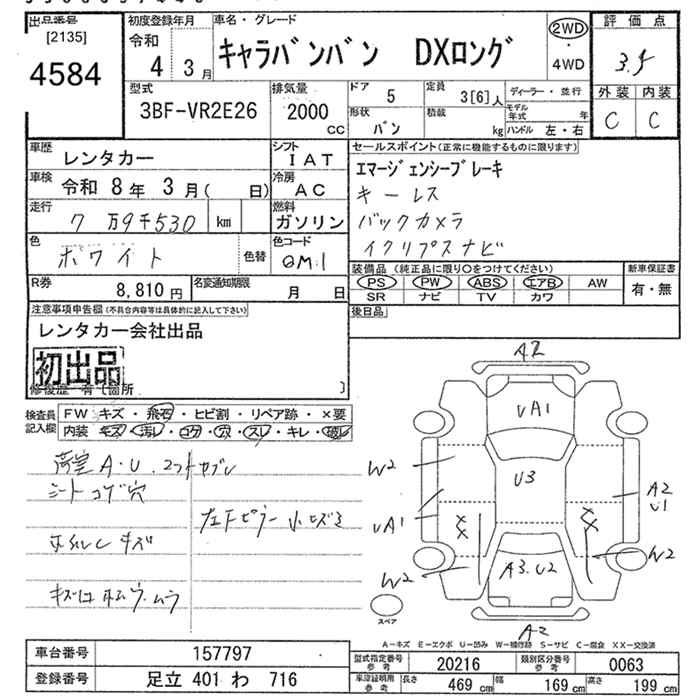 出品番号
[2135]
4584
初度登録年月
令和
4 3月
車名・グレード
キャラバンバン DXロング
2WD
・
4WD
評価点
3.5
外装 内装
C C
型式
3BF-VR2E26
排気量
2000
CC
ドア 5
定員 3[6]人
形状 バン
積載 kg
ディーラー・並行
モデル年式 年
ハンドル 左・右
車歴 レンタカー
シフト IAT
車検 令和 8年 3月( 日)
冷房 AC
走行 7万9千530 km
燃料 ガソリン
色 ホワイト
色替
色コード QM1
R券 8,810円
名変通知期限 月 日
セールスポイント(正常に機能するものに限ります)
エマージェンシーブレーキ
キーレス
バックカメラ
イクリプスナビ
装備品 (純正品に限り○をつけてください)
PS PW ABS エアB AW
SR ナビ TV カワ
新車保証書
有・無
後日品
注意事項申告欄(不具合内容等は具体的に記入して下さい)
レンタカー会社出品
初出品
修復歴 有〔箇所 〕
検査員記入欄
FW キズ・飛石・ヒビ割・リペア跡・×要
内装 キズ・汚レ・コゲ・穴・スレ・キレ・破レ
荷室 A・U
シート コゲ穴
左Fピラー
キズ
ムラ
A2
UA1
U3
W2
UA1
W2
A2
U1
W2
XX
XX
A3.U2
A2
スペア
A－キズ E－エクボ U－凹み W－補修跡 S－サビ C－腐食 XX－交換済
車台番号 157797
登録番号 足立 401 わ 716
型式指定番号 参考 20216
類別区分番号 参考 0063
車庫証明用 参考 長さ 469 cm 幅 169 cm 高さ 199 cm